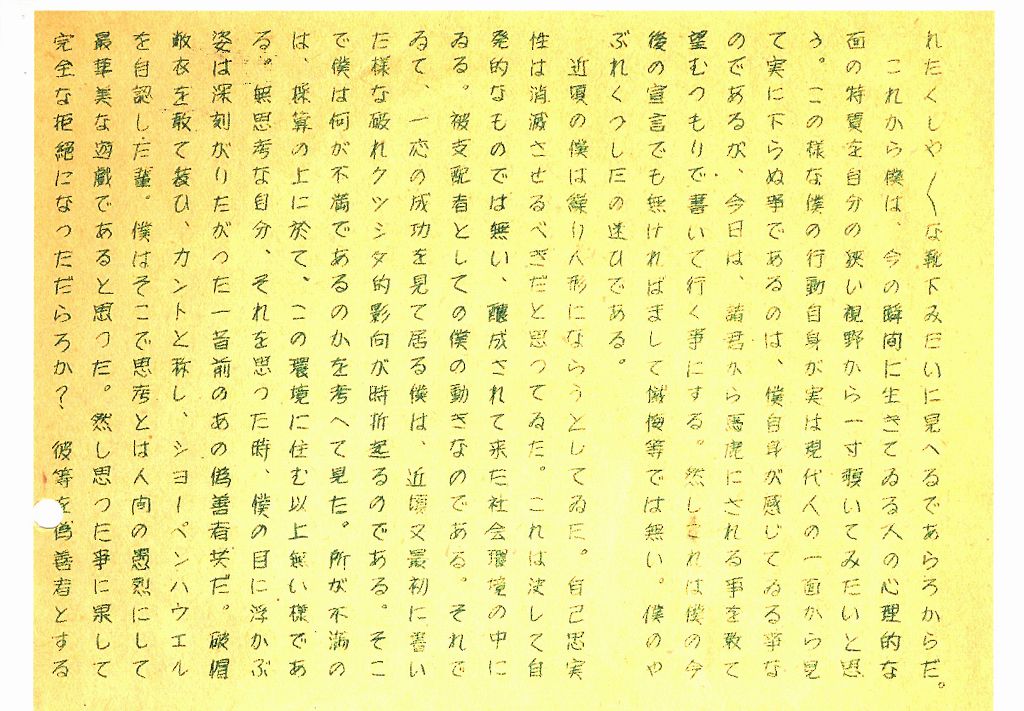 れたくしや〱な靴下みたいに見へるであらろからだ。
これから僕は、今の瞬間に生きてゐる人の心理的な
面の特質を自分の狭い視野から一寸覗いてみたいと思
う。この様な僕の行動自身が実は現代人の一面から見
て実に下らぬ事であるのは、僕自身が感じてゐる事な
のであるが、今日は、諸君から馬鹿にされる事を敢て
望むつもりで書いて行く事にする。然しこれは僕の今
後の宣言でも無ければまして懺悔等では無い。僕のや
ぶれくつしたの迷ひである。
近頃の僕は繰り人形にならうとしてゐた。自己忠実
性は消滅させるべきだと思つてゐた。これは決して自
発的なものでは無い、醸成されて来た社会環境の中に
ゐる。被支配者としての僕の動きなのである。それで
ゐて、一応の成功を見て居る僕は、近頃又最初に書い
た様な破れクツシタ的影向が時折起るのである。そこ
で僕は何が不満であるのかを考へて見た。所が不満の
は、採算の上に於て、この環境に住む以上無い様であ
る。無思考な自分、それを思つた時、僕の目に浮かぶ
姿は深刻がりたがつた一昔前のあの偽善者共だ。破帽
敝衣を敢て装ひ、カントと称し、シヨーペンハウエル
を自認した輩。僕はそこで思考とは人間の愚烈にして
最華美な遊戯であると思つた。然し思つた事に果して
完全な拒絶になつただらろか？彼等を偽善者とする